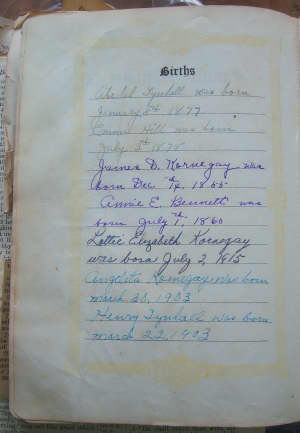 Births
Tyndall was born
January 8th 1877
Emma Hill was born
July 5th 1878
James D. Kornegay was
born Dec 14th, 1855
Annie E. Bennett was
born July 1st, 1860
Lottie Elizabeth Kornegay
was born July 2, 1915
Kornegay was born
march 30, 1903
Henry Tyndall was born
march 22, 1903